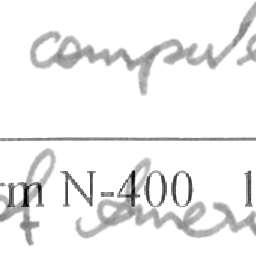 compute
rm N-400 1
of Ameri